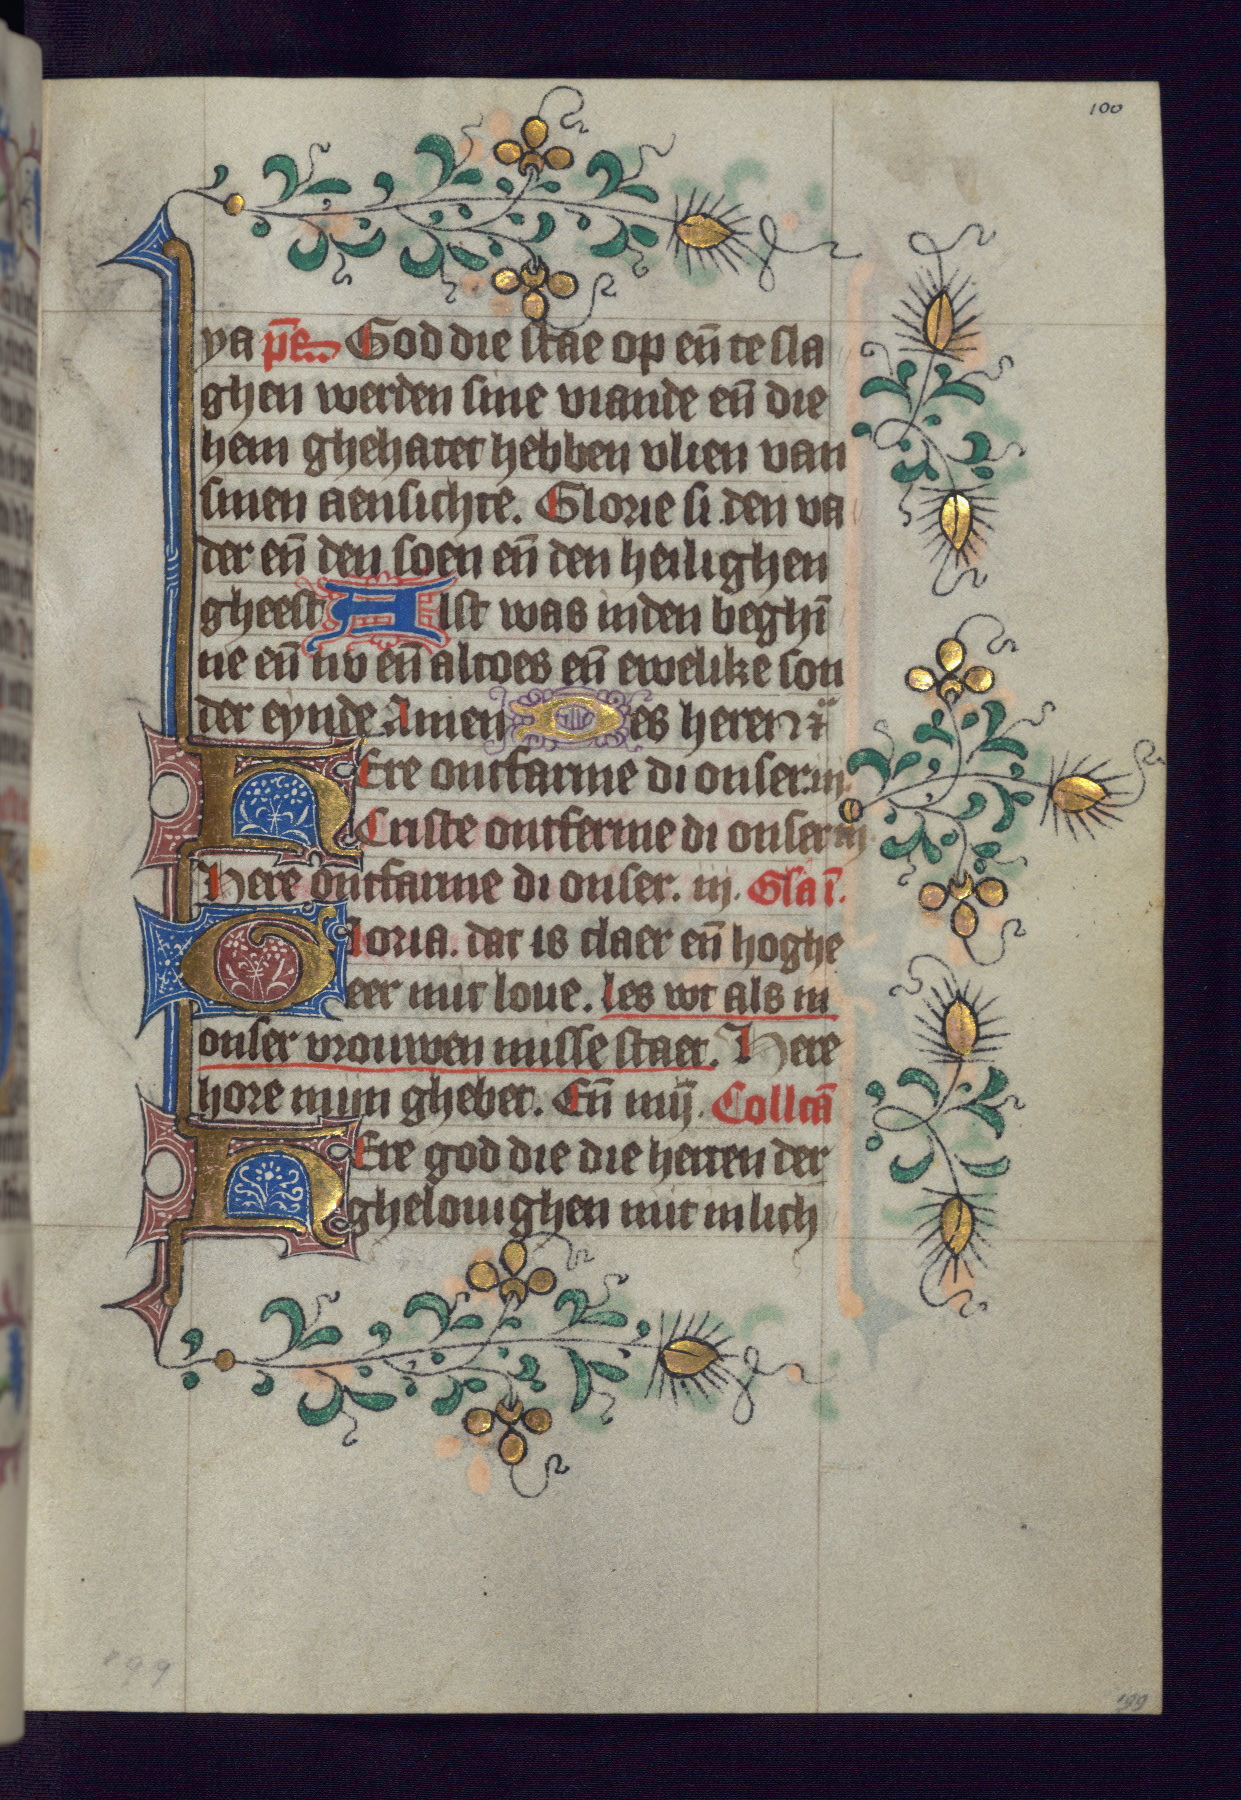 100
ya p̄e. God die stae op en̄ te sla
ghen werden sine viande en̄ die
hem ghehatet hebben vlien van
sinen aensichte. Glorie si den va
der en̄ den soen en̄ den heilighen
gheest Alst was inden beghī
ne en̄ nv en̄ altoes en̄ ewelike son
der eynde Amen Des heren
HEre ontfarme di onser. iij.
Criste ontferme di onser iij
Here ontfarme di onser. iij. Gla ī.
GLoria. dat is claer en̄ hoghe
eer mit loue. les wt als in
onser vrouwen misse staet. Here
hore mijn ghebet. En̄ mij. Collcā
HEre god die die herten der
ghelouighen mit in lich
199